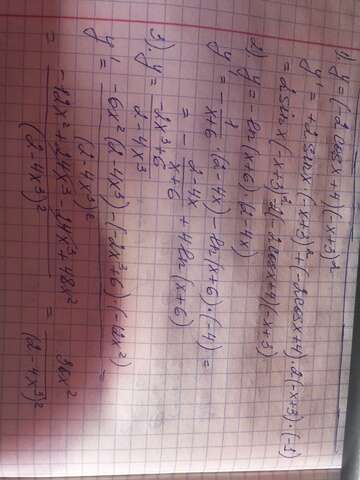 1). y = (-2cosx+4)(-x+3)²
y' = +2sinx·(-x+3)²+(-2cosx+4)·2(-x+3)·(-1)
= 2sinx(-x+3)²-2(-2cosx+4)(-x+3)
2) y = -ln(x+6)(2-4x)
y' = -1/(x+6) · (2-4x) - ln(x+6)·(-4) =
= -(2-4x)/(x+6) + 4ln(x+6)
3). y = (-2x³+6)/(2-4x³)
y' = (-6x²(2-4x³)-(-2x³+6)(-12x²))/(2-4x³)² =
= (-12x²+24x³-24x³+48x²)/(2-4x³)² = 36x²/(2-4x³)²